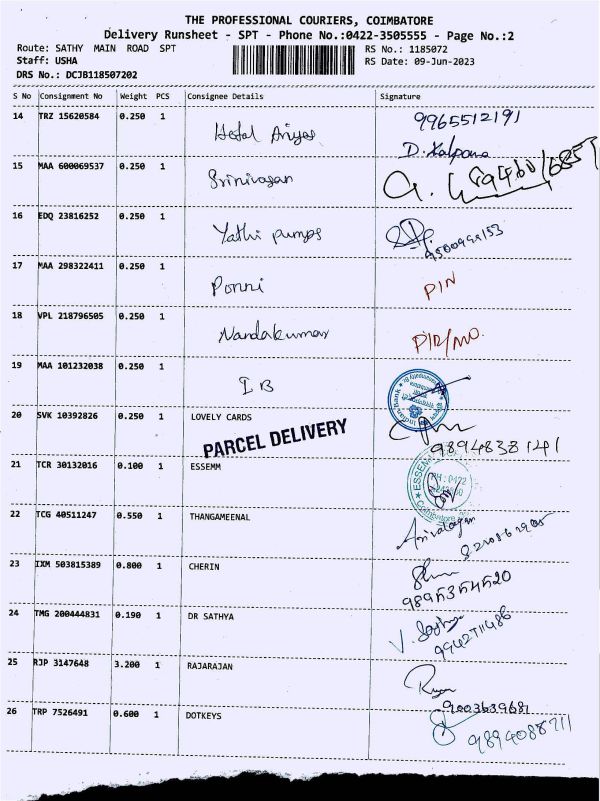 THE PROFESSIONAL COURIERS, COIMBATORE
Delivery Runsheet - SPT - Phone No.:0422-3505555 - Page No.:2
Route: SATHY MAIN ROAD SPT RS No.: 1185072
Staff: USHA RS Date: 09-Jun-2023
DRS No.: DCJB118507202
S No Consignment No Weight PCS Consignee Details Signature
14 TRZ 15620584 0.250 1 9965512191
D. Kalpana
15 MAA 600069537 0.250 1 Srinivasan
16 EDQ 23816252 0.250 1 Yathi pumps
17 MAA 298322411 0.250 1 Ponni PIN
18 VPL 218796505 0.250 1 Nandakumar PIR/MO.
19 MAA 101232038 0.250 1 IB
Indian Bank
20 SVK 10392826 0.250 1 LOVELY CARDS
PARCEL DELIVERY 9894838141
21 TCR 30132016 0.100 1 ESSEMM
ESSEMM
PH: 0422
Coimbatore
22 TCG 40511247 0.550 1 THANGAMEENAL
23 IXM 503815389 0.800 1 CHERIN
24 TMG 200444831 0.190 1 DR SATHYA V. Sathya
9942711486
25 RJP 3147648 3.200 1 RAJARAJAN
9003639681
26 TRP 7526491 0.600 1 DOTKEYS
9894088711